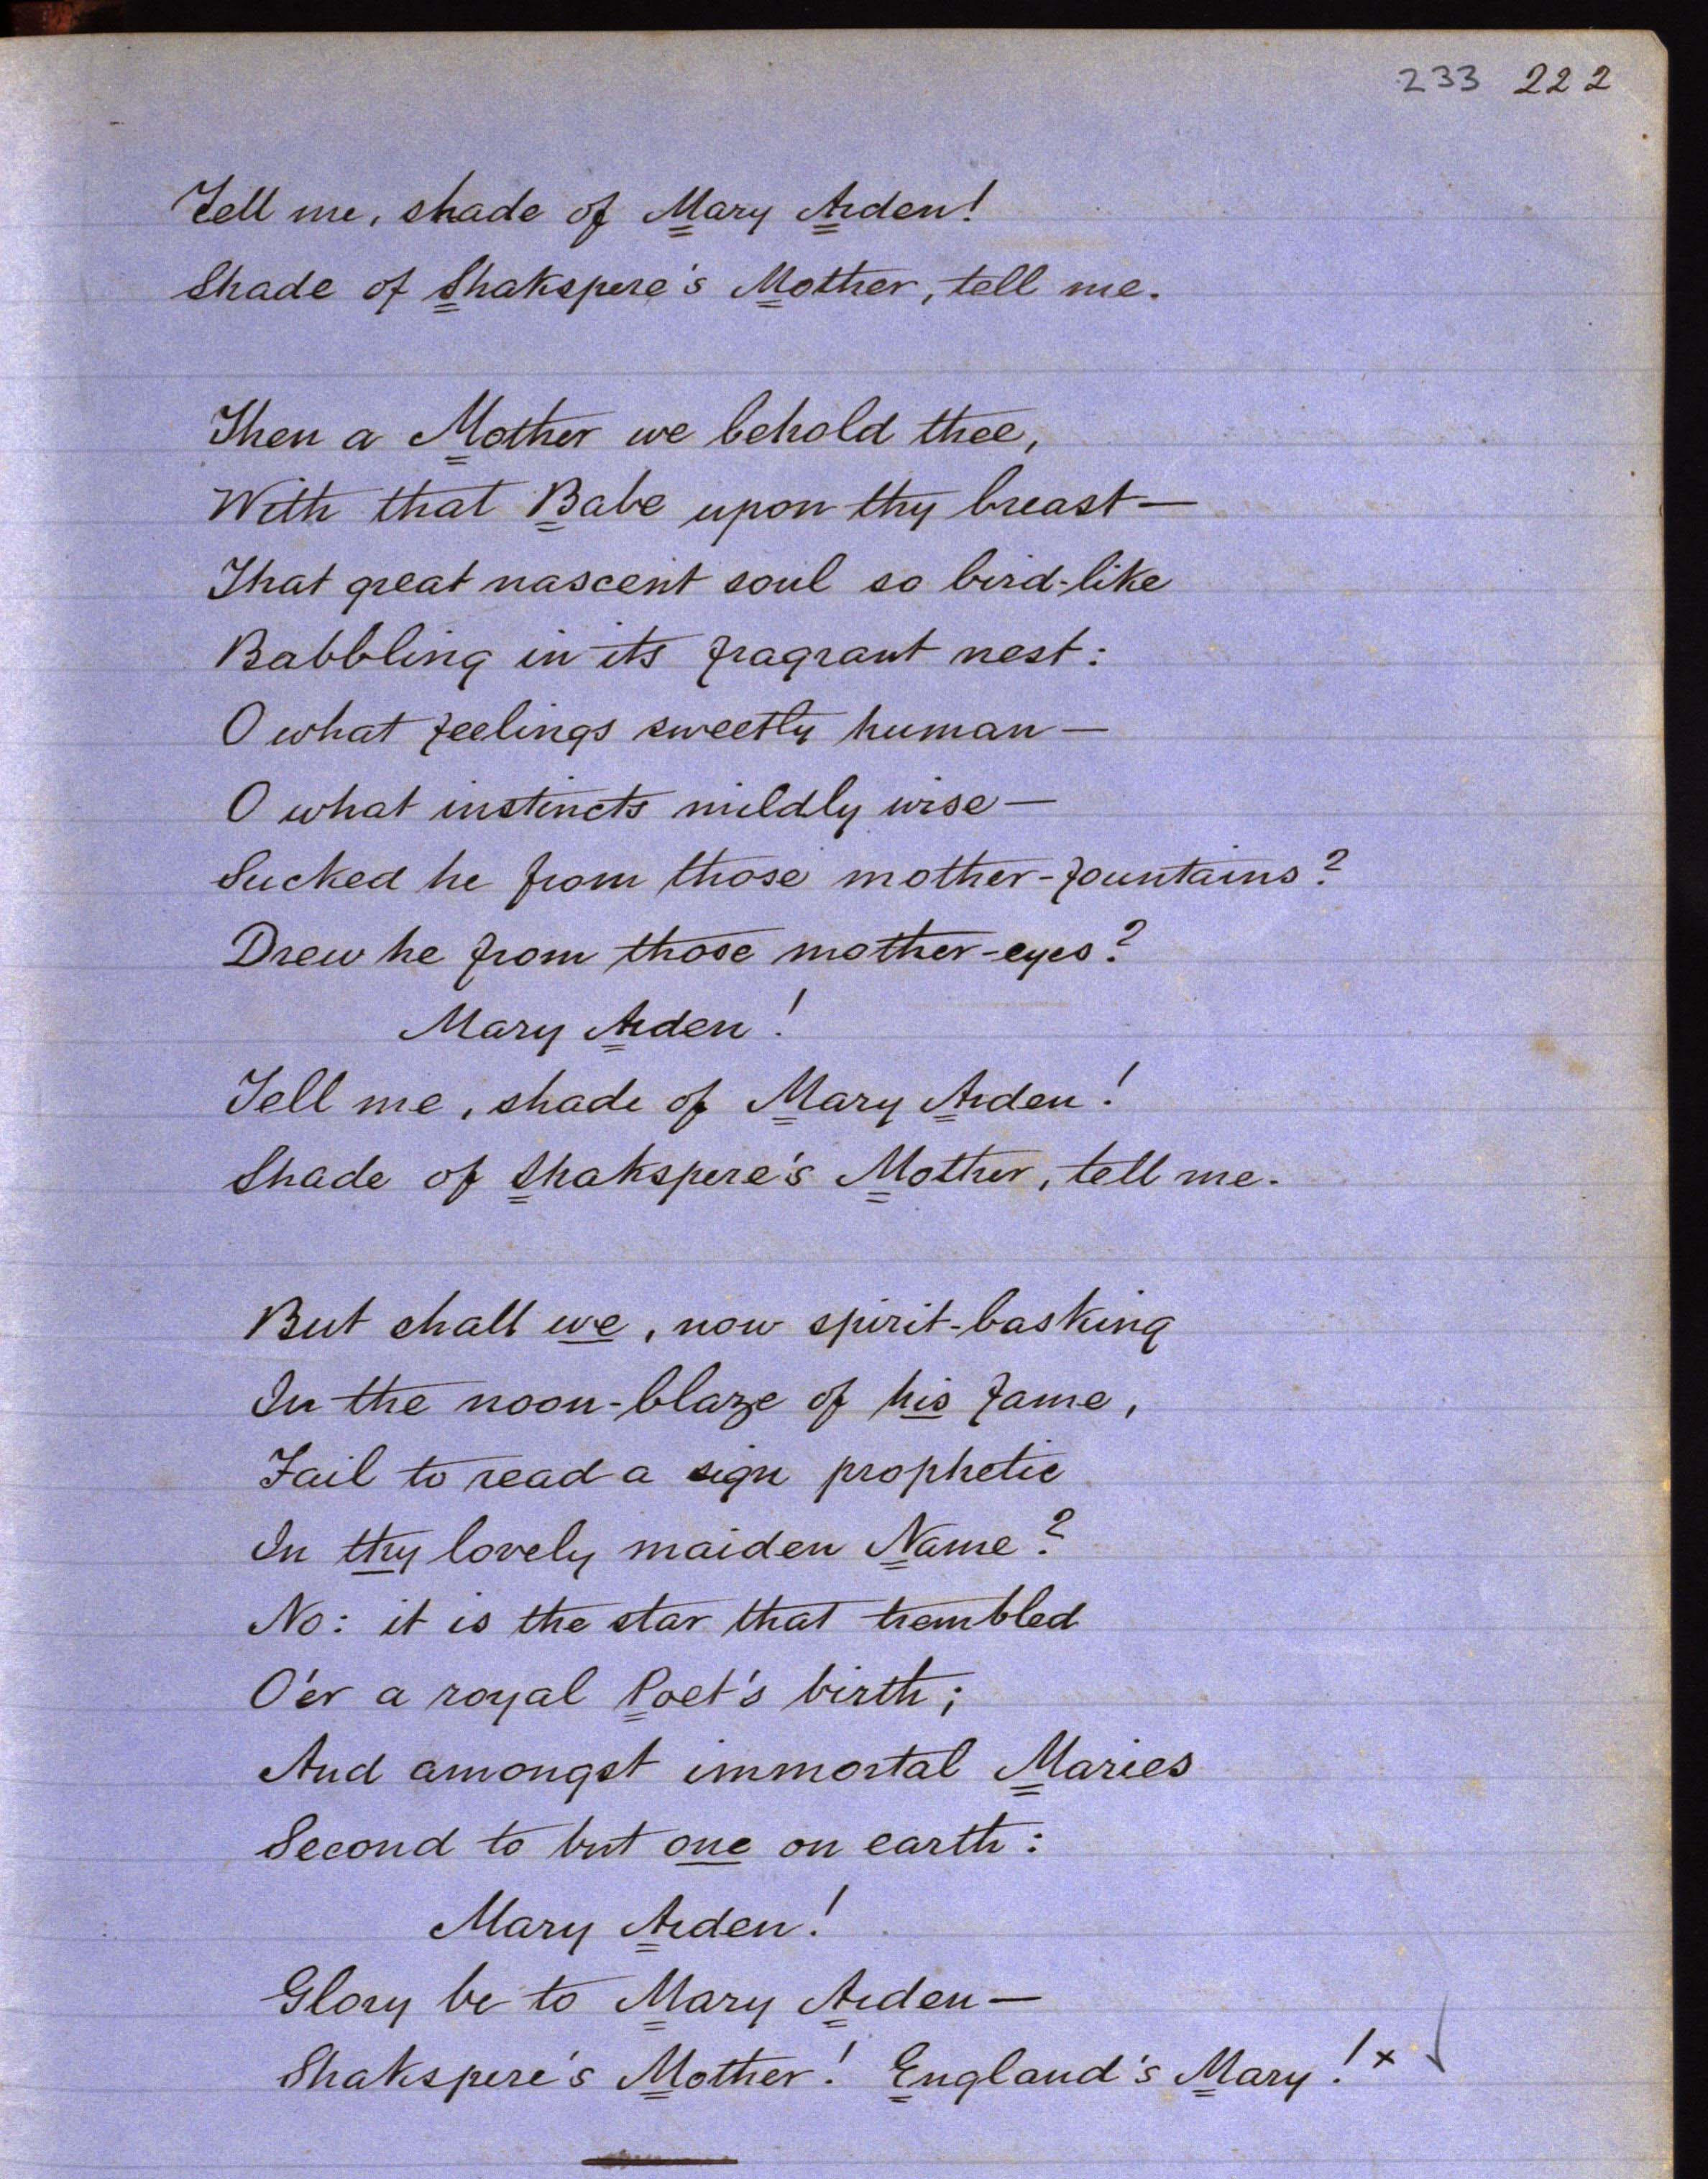 233 222
Tell me, shade of Mary Arden!
Shade of Shakspere's Mother, tell me.
Then a Mother we behold thee,
With that Babe upon thy breast—
That great nascent soul so bird-like
Babbling in its fragrant nest:
O what feelings sweetly human—
O what instincts mildly wise—
Sucked he from those mother-fountains?
Drew he from those mother-eyes?
Mary Arden!
Tell me, shade of Mary Arden!
Shade of Shakspere's Mother, tell me.
But shall we, now spirit-basking
In the noon-blaze of his fame,
Fail to read a sign prophetic
In thy lovely maiden Name?
No: it is the star that trembled
O'er a royal Poet's birth;
And amongst immortal Maries
Second to but one on earth:
Mary Arden!
Glory be to Mary Arden—
Shakspere's Mother! England's Mary! x